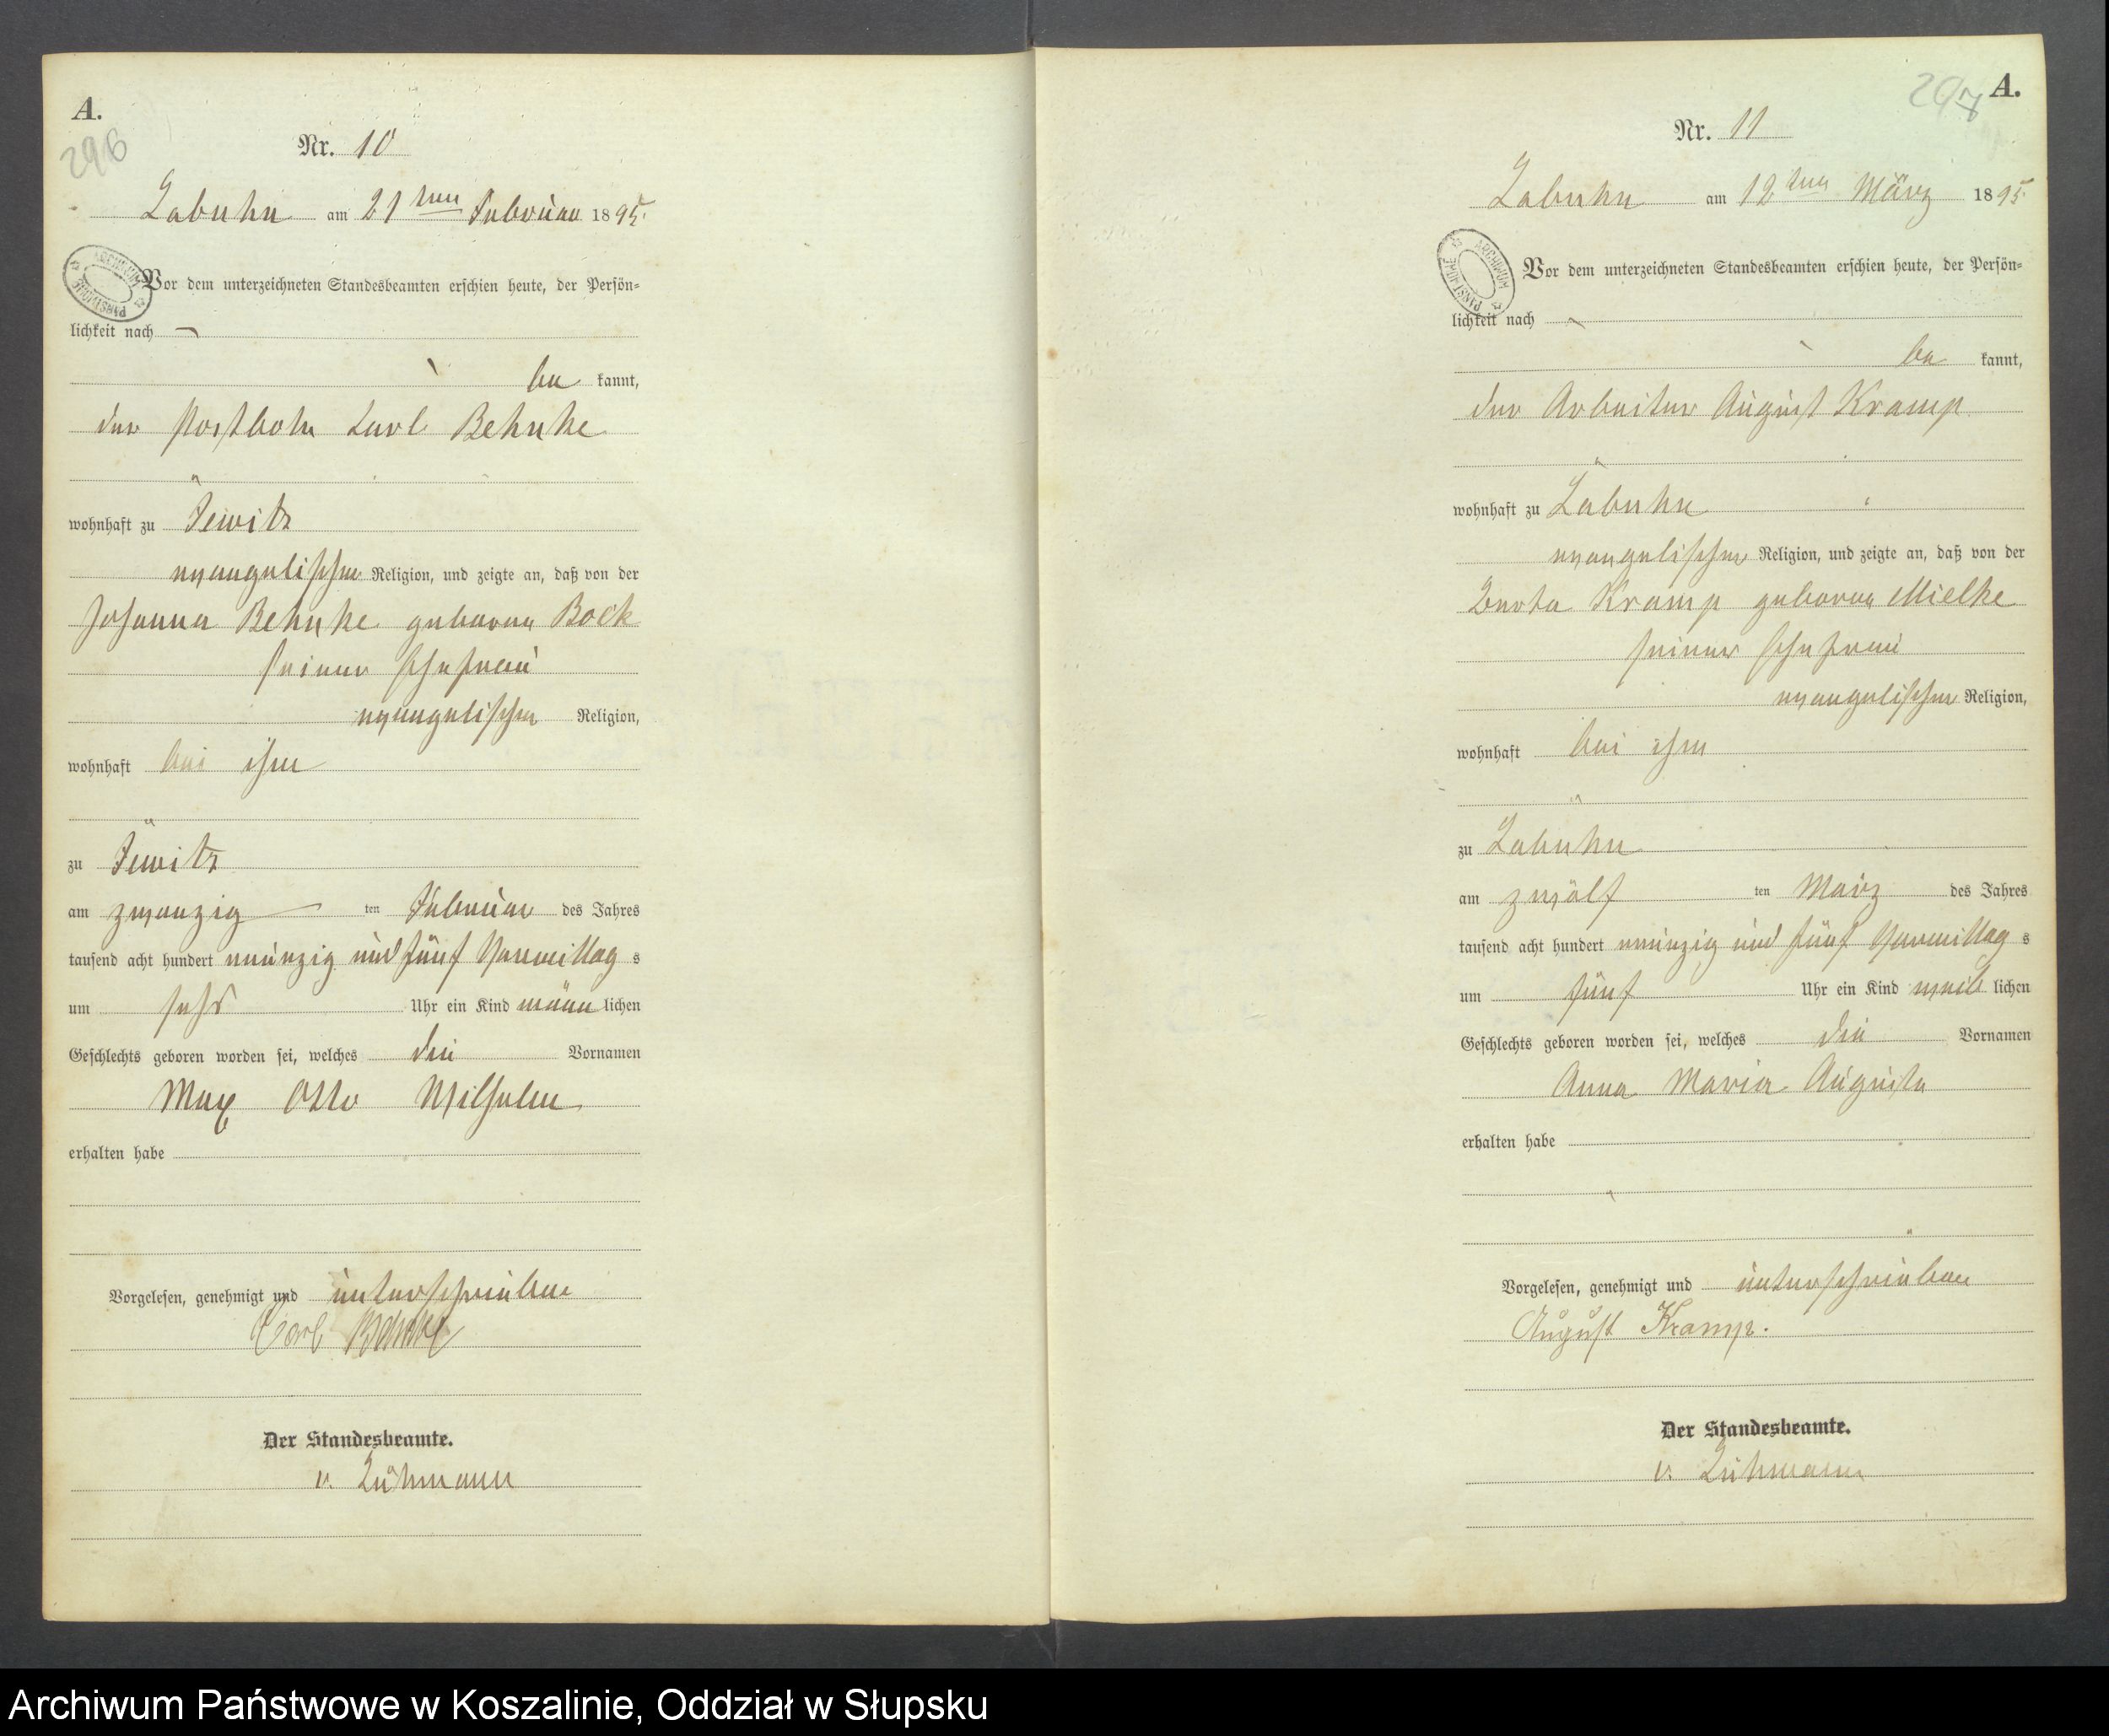 A.
296
Nr. 10
Labuhn am 21ten Februar 1895.
Vor dem unterzeichneten Standesbeamten erschien heute, der Persön-
lichkeit nach
be kannt,
der Postbote Carl Behnke
wohnhaft zu Jewitz
evangelischer Religion, und zeigte an, daß von der
Johanna Behnke geborene Bock
seiner Ehefrau
evangelischer Religion,
wohnhaft bei ihm
zu Jewitz
am zwanzig ten Februar des Jahres
tausend acht hundert neunzig und fünf Vormittag s
um sechs Uhr ein Kind männ lichen
Geschlechts geboren worden sei, welches die Vornamen
Max Otto Wilhelm
erhalten habe
Vorgelesen, genehmigt und unterschrieben
Carl Behnke
Der Standesbeamte.
v. Lühmann
A.
297
Nr. 11
Labuhn am 12ten März 1895.
ARCHIWUM PAŃSTWOWE
Vor dem unterzeichneten Standesbeamten erschien heute, der Persön-
lichkeit nach
be kannt,
der Arbeiter August Kramp
wohnhaft zu Labuhn
evangelischer Religion, und zeigte an, daß von der
Berta Kramp geborene Mielke
seiner Ehefrau
evangelischer Religion,
wohnhaft bei ihm
zu Labuhn
am zwölf ten März des Jahres
tausend acht hundert neunzig und fünf Vormittag s
um fünf Uhr ein Kind weib lichen
Geschlechts geboren worden sei, welches die Vornamen
Anna Maria Augusta
erhalten habe
Vorgelesen, genehmigt und unterschrieben
August Kramp.
Der Standesbeamte.
v. Lühmann
Archiwum Państwowe w Koszalinie, Oddział w Słupsku